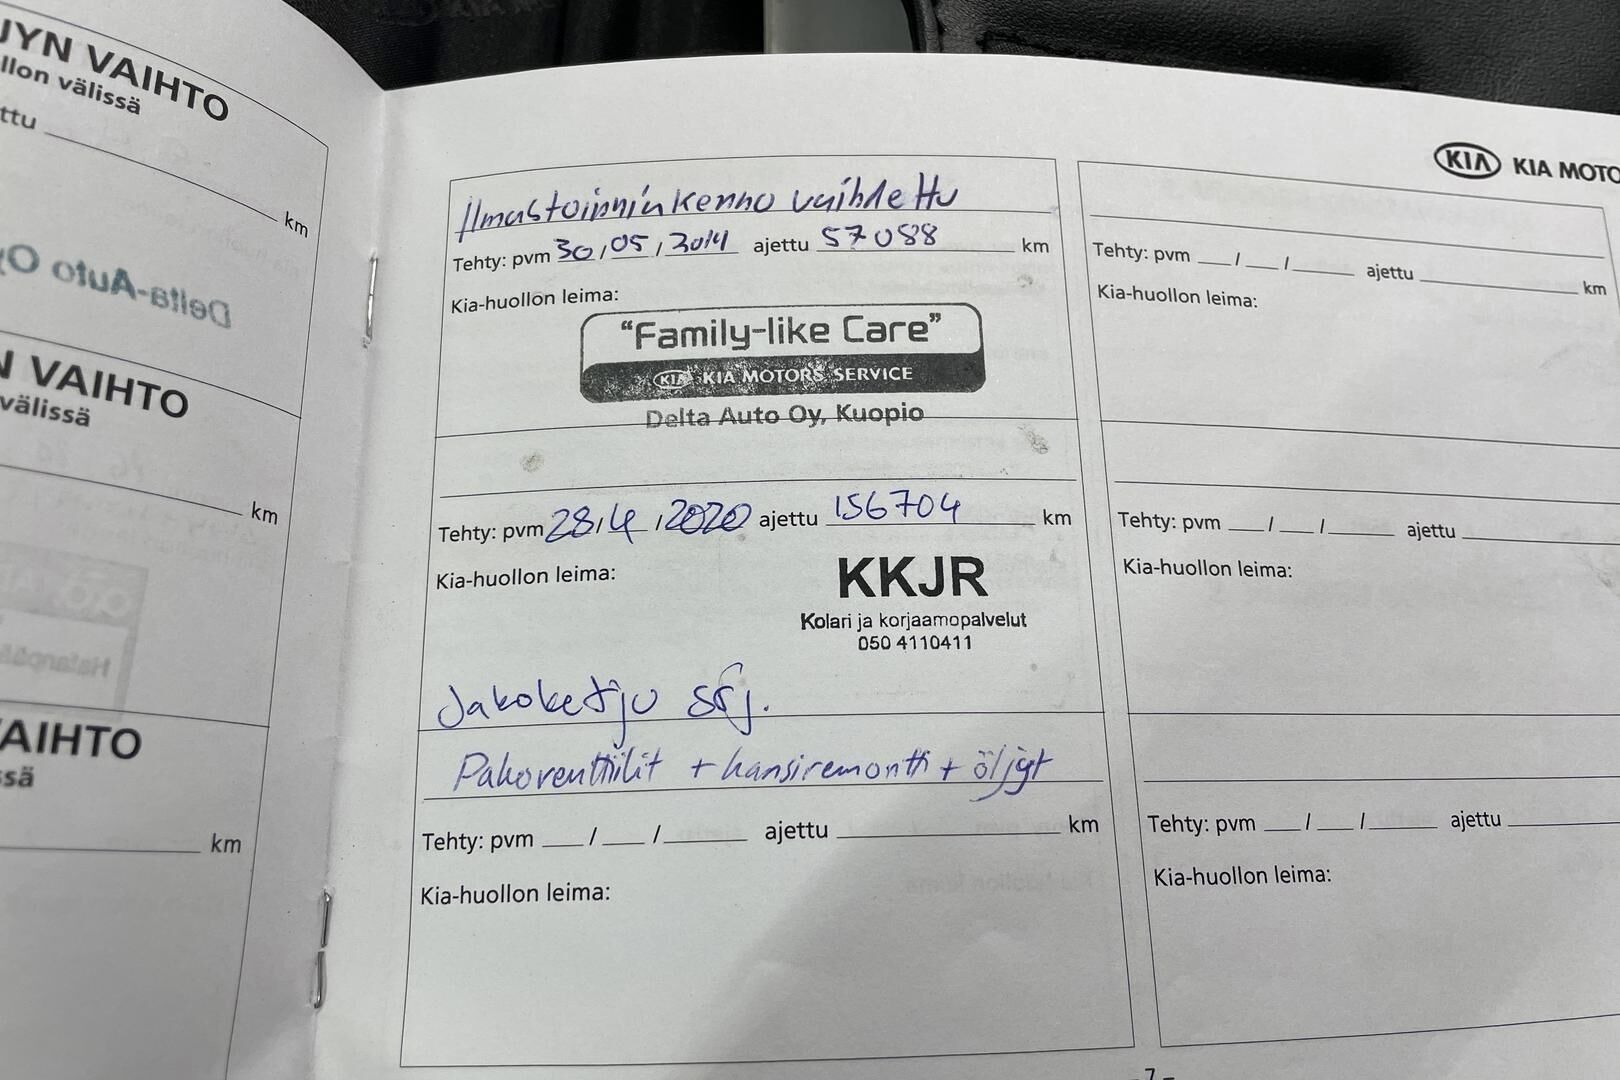 JYN VAIHTO
llon välissä
ttu km
N VAIHTO
välissä
km
AIHTO
sä
km
Ilmastoinnin kenno vaihdettu
Tehty: pvm 30/05/3014 ajettu 57088 km
Kia-huollon leima:
"Family-like Care"
KIA KIA MOTORS SERVICE
Delta Auto Oy, Kuopio
Tehty: pvm 28/4/2020 ajettu 156704 km
Kia-huollon leima:
KKJR
Kolari ja korjaamopalvelut
050 4110411
Jakoketju srj.
Pakoventtiilit + kansiremontti + öljyt
Tehty: pvm / / ajettu km
Kia-huollon leima:
KIA KIA MOTO
Tehty: pvm / / ajettu km
Kia-huollon leima:
Tehty: pvm / / ajettu
Kia-huollon leima:
Tehty: pvm / / ajettu
Kia-huollon leima:
- 7 -